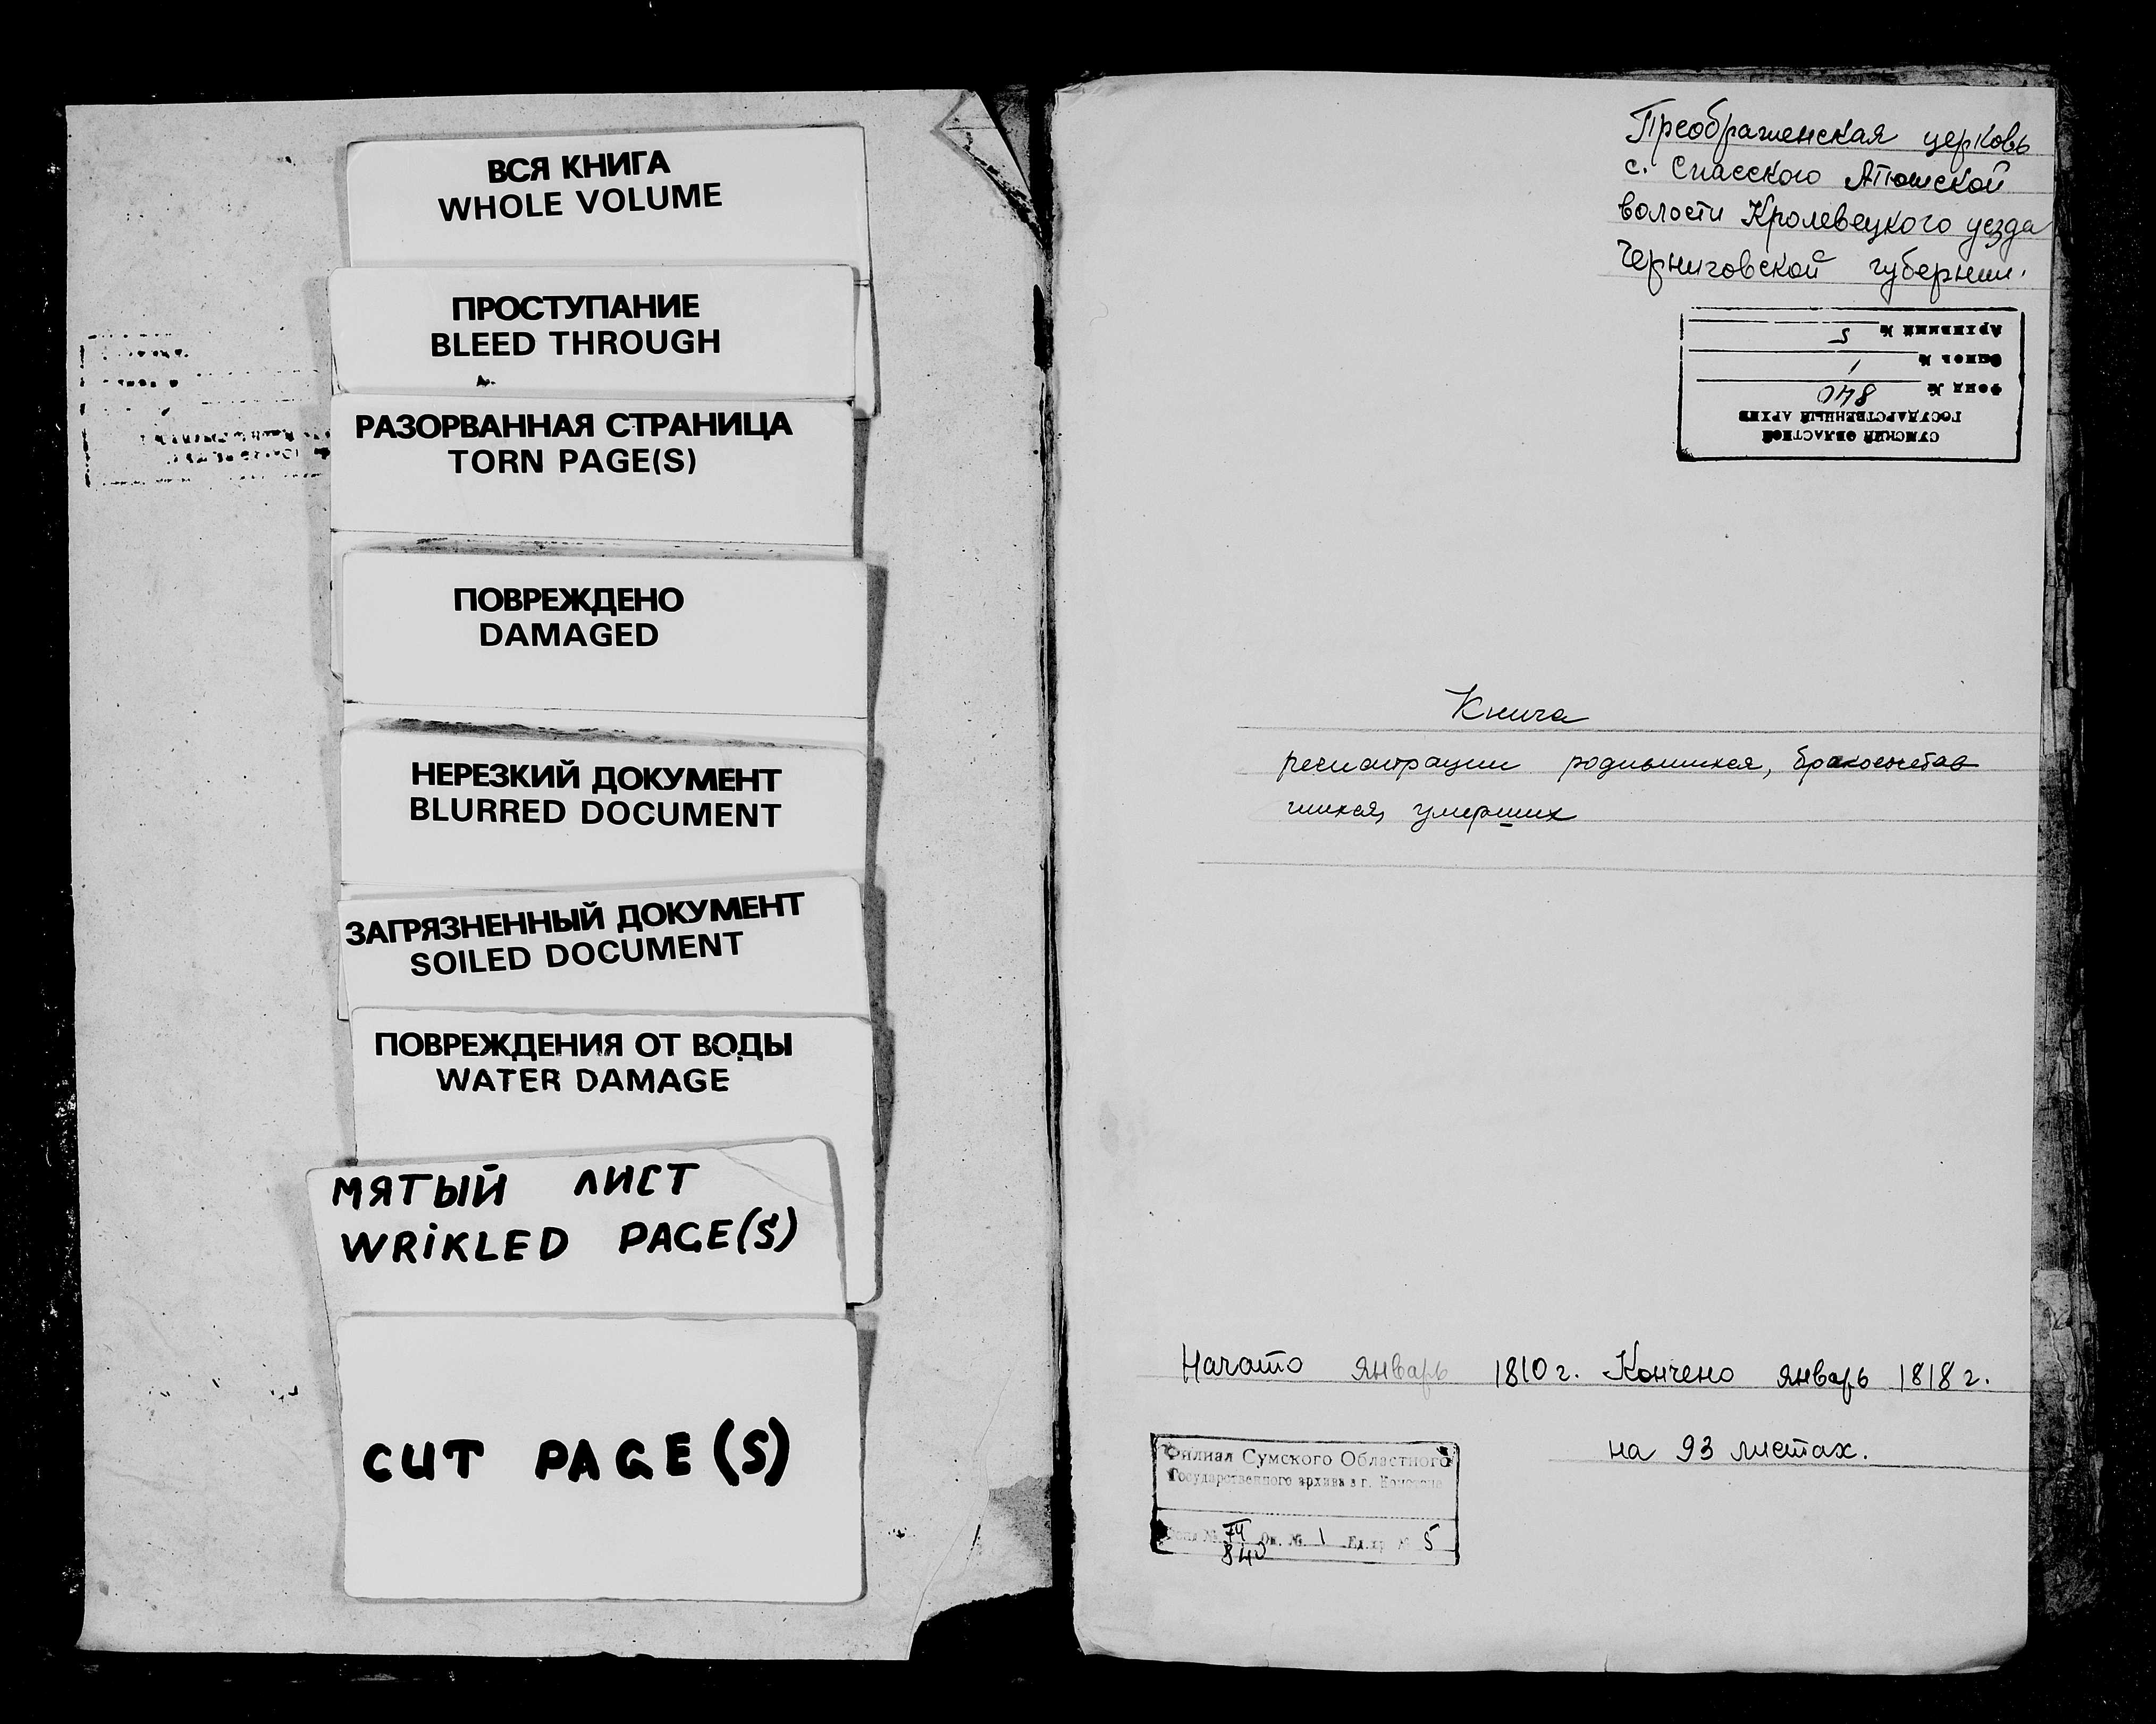 ВСЯ КНИГА
WHOLE VOLUME
ПРОСТУПАНИЕ
BLEED THROUGH
РАЗОРВАННАЯ СТРАНИЦА
TORN PAGE(S)
ПОВРЕЖДЕНО
DAMAGED
НЕРЕЗКИЙ ДОКУМЕНТ
BLURRED DOCUMENT
ЗАГРЯЗНЕННЫЙ ДОКУМЕНТ
SOILED DOCUMENT
ПОВРЕЖДЕНИЯ ОТ ВОДЫ
WATER DAMAGE
МЯТЫЙ ЛИСТ
WRIKLED PAGE(S)
CUT PAGE(S)
Преображенская церковь
с. Спасского Атюшской
волости Кролевецкого уезда
Черниговской губернии.
СУМСКИЙ ОБЛАСТНОЙ
ГОСУДАРСТВЕННЫЙ АРХИВ
Фонд № 840
Опись № 1
Архивный № 5
Книга
регистрации родившихся, бракосочетав
шихся, умерших
Начато январь 1810 г. Кончено январь 1818 г.
на 93 листах.
Филиал Сумского Областного
Государственного архива в г.
Фонд № 74 Оп. № 1 Ед.хр № 5
840